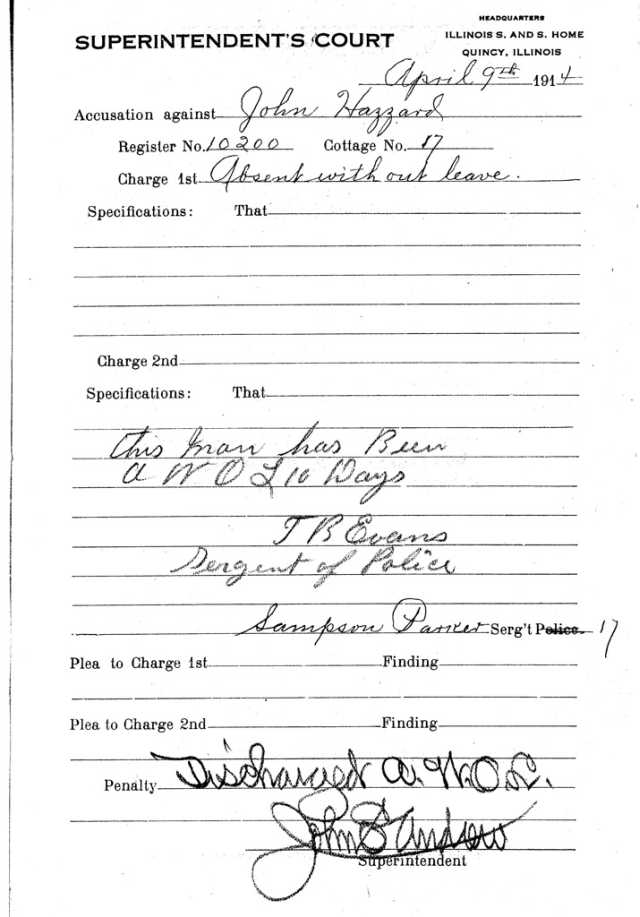 HEADQUARTERS
ILLINOIS S. AND S. HOME
QUINCY, ILLINOIS
SUPERINTENDENT'S COURT
April 9th 1914
Accusation against John Hazzard
Register No. 10200 Cottage No. 17
Charge 1st Absent with out leave.
Specifications: That
Charge 2nd
Specifications: That
this man has Been
A W O L 10 Days
T B Evans
Sergent of Police
Sampson Parker Serg't Police. 17
Plea to Charge 1st Finding
Plea to Charge 2nd Finding
Penalty Discharged A.W.O.L.
John E Andrew
Superintendent